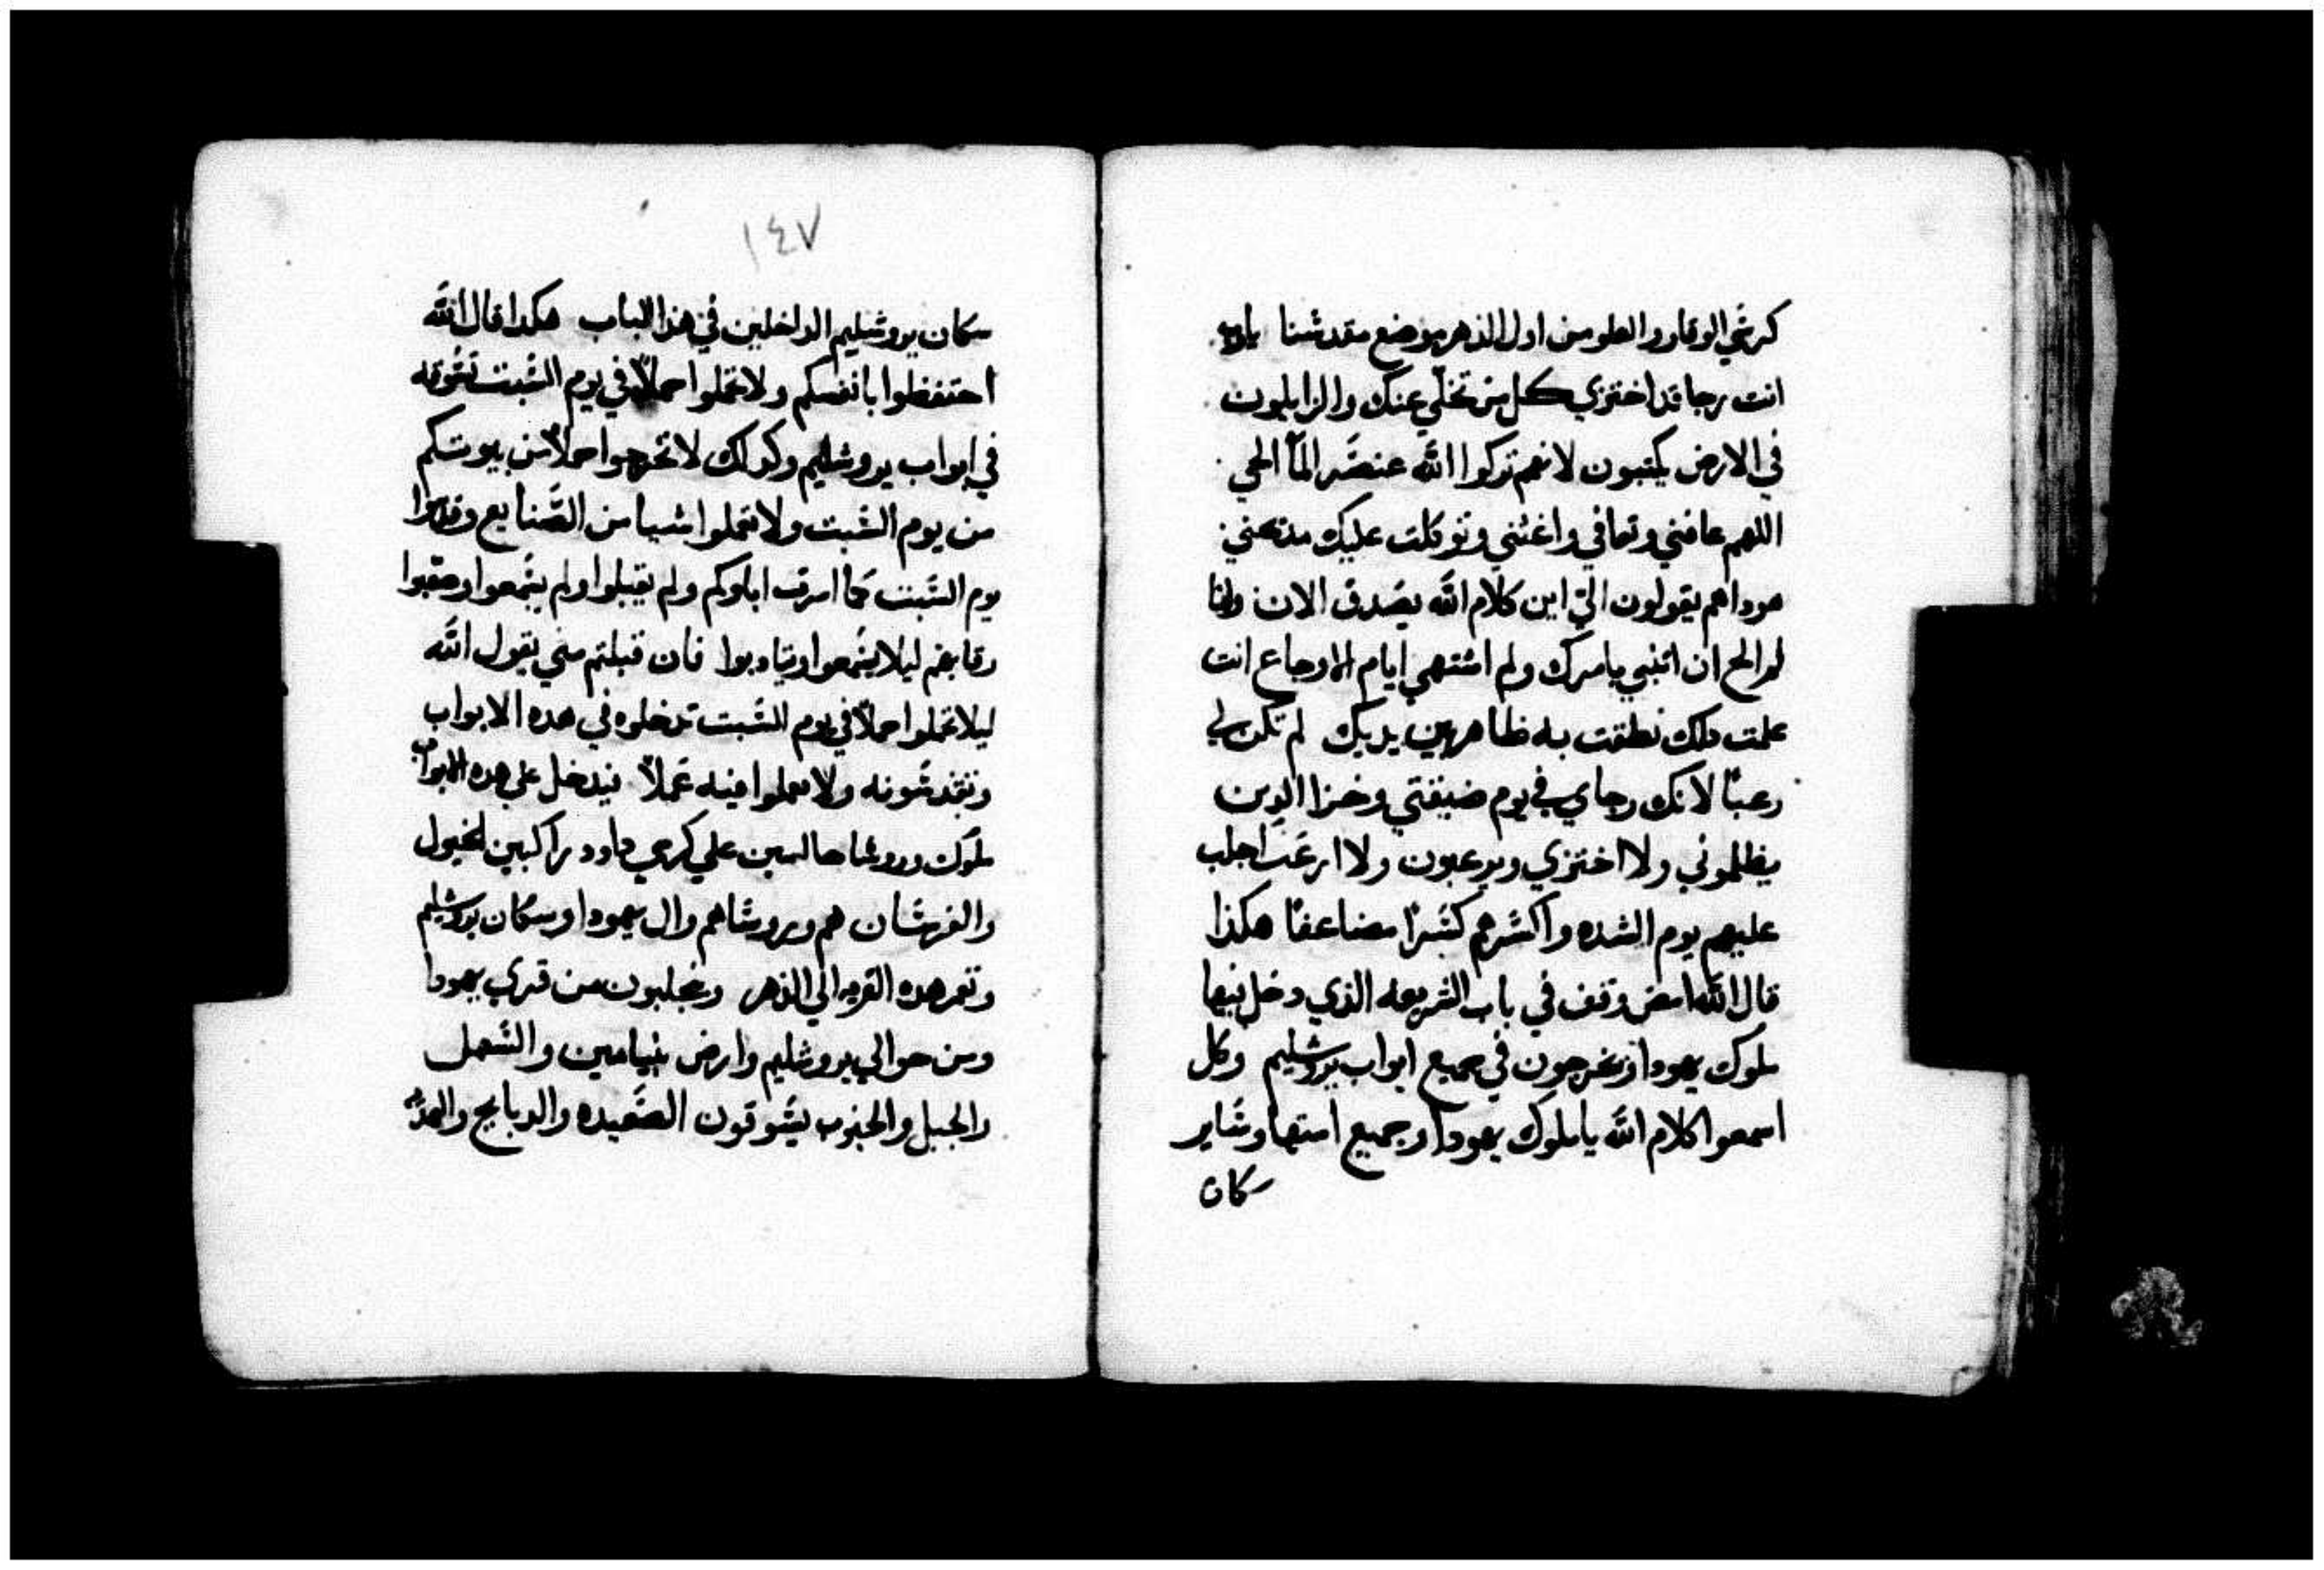 كرشي الوقار والعلو من اول الدهر موضع مقدشنا يارب
انت رجا قد اختزي كل من تخلي عنك والزايلون
في الارض يكتبون لانهم تركوا الله عنصر المآ الحي
اللهم عافني وتعافي واغثني وتوكلت عليك مدحني
هوداهم يقولون الي اين كلام الله يصدق الان وانا
لم الح ان اتبني يامرك ولم اشتهي ايام الاوجاع انت
علمت دلك نطقت به ظاهر بين يديك لم تكن لي
رعبًا لانك رجاي في يوم ضيقتي وخزا الدين
يظلموني ولا اختزي ويرعبون ولا ارعب اجلب
عليهم يوم الشده واكشرهم كشرًا مضاعفًا هكذا
قال الله امض وقف في باب الشريعه الذي دخل فيها
ملوك يهودا ويخرجون في جميع ابواب يروشليم وكل
اسمعوا كلام الله ياملوك يهودا وجميع امتها وشاير
سكان
١٤٧
سكان يروشليم الداخلين في هذا الباب هكدا قال الله
احتفظوا بانفسكم ولا تحملوا حملاً في يوم الشبت تشوقه
في ابواب يروشليم وكدلك لا تخرجوا حملاً من بيوتكم
من يوم الشبت ولا تعملوا شيا من الصنايع وقدسوا
يوم الشبت كما امرت اباوكم ولم يقبلوا ولم يشمعوا وصعبوا
رقابهم ليلا يشمعوا ويتادبوا فان قبلتم مني يقول الله
ليلا تحملوا حملاً في يوم الشبت تدخلوه في هده الابواب
وتقدشونه ولا تعملوا فيه عملاً فيدخل علي هده الابواب
ملوك وروشا جالسين علي كرسي داود راكبين الخيول
والفرشان هم وروشاهم وال يهودا وسكان يروشليم
وتعمر هده القريه الي الدهر ويجلبون من قري يهودا
ومن حوالي يروشليم وارض بنيامين والشهل
والجبل والجنوب يشوقون الصعيده والدبايح والهديه